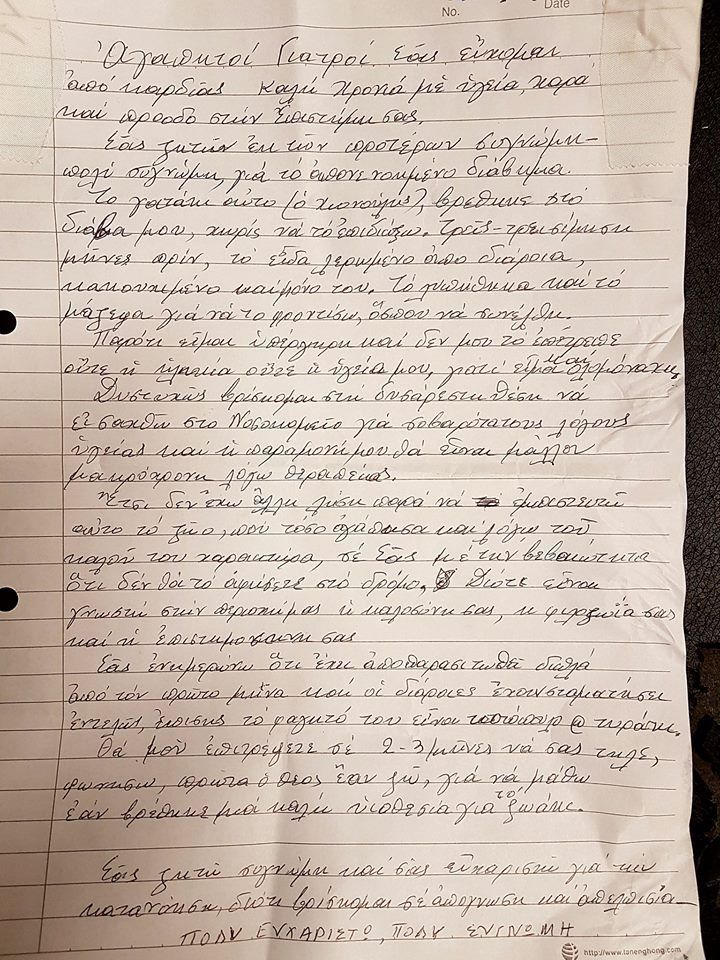 No.
Date
Ἀγαπητοί Γιατροί Σᾶς εὔχομαι
ἀπό καρδιᾶς καλή χρονιά μέ ὑγεία, χαρά
καί πρόοδο στήν Ἐπιστήμη σας.
Σᾶς ζητῶ ἐκ τῶν προτέρων συγνώμη-
πολύ συγνώμη, γιά τό ἀπονενοημένο διάβημα.
Τό γατάκι αὐτό (ὁ χιονούλης), βρέθηκε στό
διάβα μου, χωρίς νά τό ἐπιδιώξω. Τρεῖς-τρεισίμηση
μῆνες πρίν, τό εἶδα λερωμένο ἀπό διάροια,
κακουχιμένο καί μόνο του. Τό λυπήθηκα καί τό
μάζεψα γιά νά το φροντίσω, ὥσπου νά συνέλθη.
Παρότι εἶμαι ὑπέργηρη καί δεν μου τό ἐπέτρεπε
οὔτε ἡ ἡλικία οὔτε ἡ ὑγεία μου, γιατί εἶμαι και ὁλομόναχη.
Δυστυχῶς βρίσκομαι στή δυσάρεστη θέση νά
εἰσαχθῶ στο Νοσοκομεῖο γιά σοβαρότατους λόγους
ὑγείας καί ἡ παραμονή μου θά εἶναι μᾶλλον
μακρόχρονη λόγω θεραπείας.
Ἔτσι δεν ἔχω ἄλλη λύση παρά νά ἐμπιστευτῶ
αὐτό τό ζῶο, πού τόσο ἀγάπησα καί λόγω τοῦ
καλοῦ του χαρακτήρα, σέ Σᾶς μέ τήν βεβαιότητα
ὅτι δέν θά τό ἀφήσετε στό δρόμο. Διότι εἶναι
γνωστή στήν περιοχή μας ἡ καλοσύνη σας, ἡ φιλοζωΐα σας
καί ἡ ἐπιστημοσύνη σας
Σᾶς ἐνημερώνω ὅτι ἔχει ἀποπαρασιτωθεῖ διπλά
ἀπό τόν πρῶτο μῆνα καί οἱ διάροιες ἔχουν σταματήσει
ἐντελῶς, ἐπίσης τό φαγητό του εἶναι
Θά μοῦ ἐπιτρέψετε σέ 2-3 μῆνες νά σας τηλε,
φωνήσω, πρῶτα ὁ Θεός ἐάν ζῶ, γιά νά μάθω
ἐάν βρέθηκε μιά καλή υἱοθεσία γιά τό ζωάκι.
Σᾶς ζητῶ συγνώμη καί σᾶς εὐχαριστῶ γιά τήν
κατανόηση, διότι βρίσκομαι σέ ἀπόγνωση καί ἀπελπισία-
ΠΟΛΥ ΕΥΧΑΡΙΣΤΩ, ΠΟΛΥ ΣΥΓΝΩΜΗ
http://www.tanenghong.com